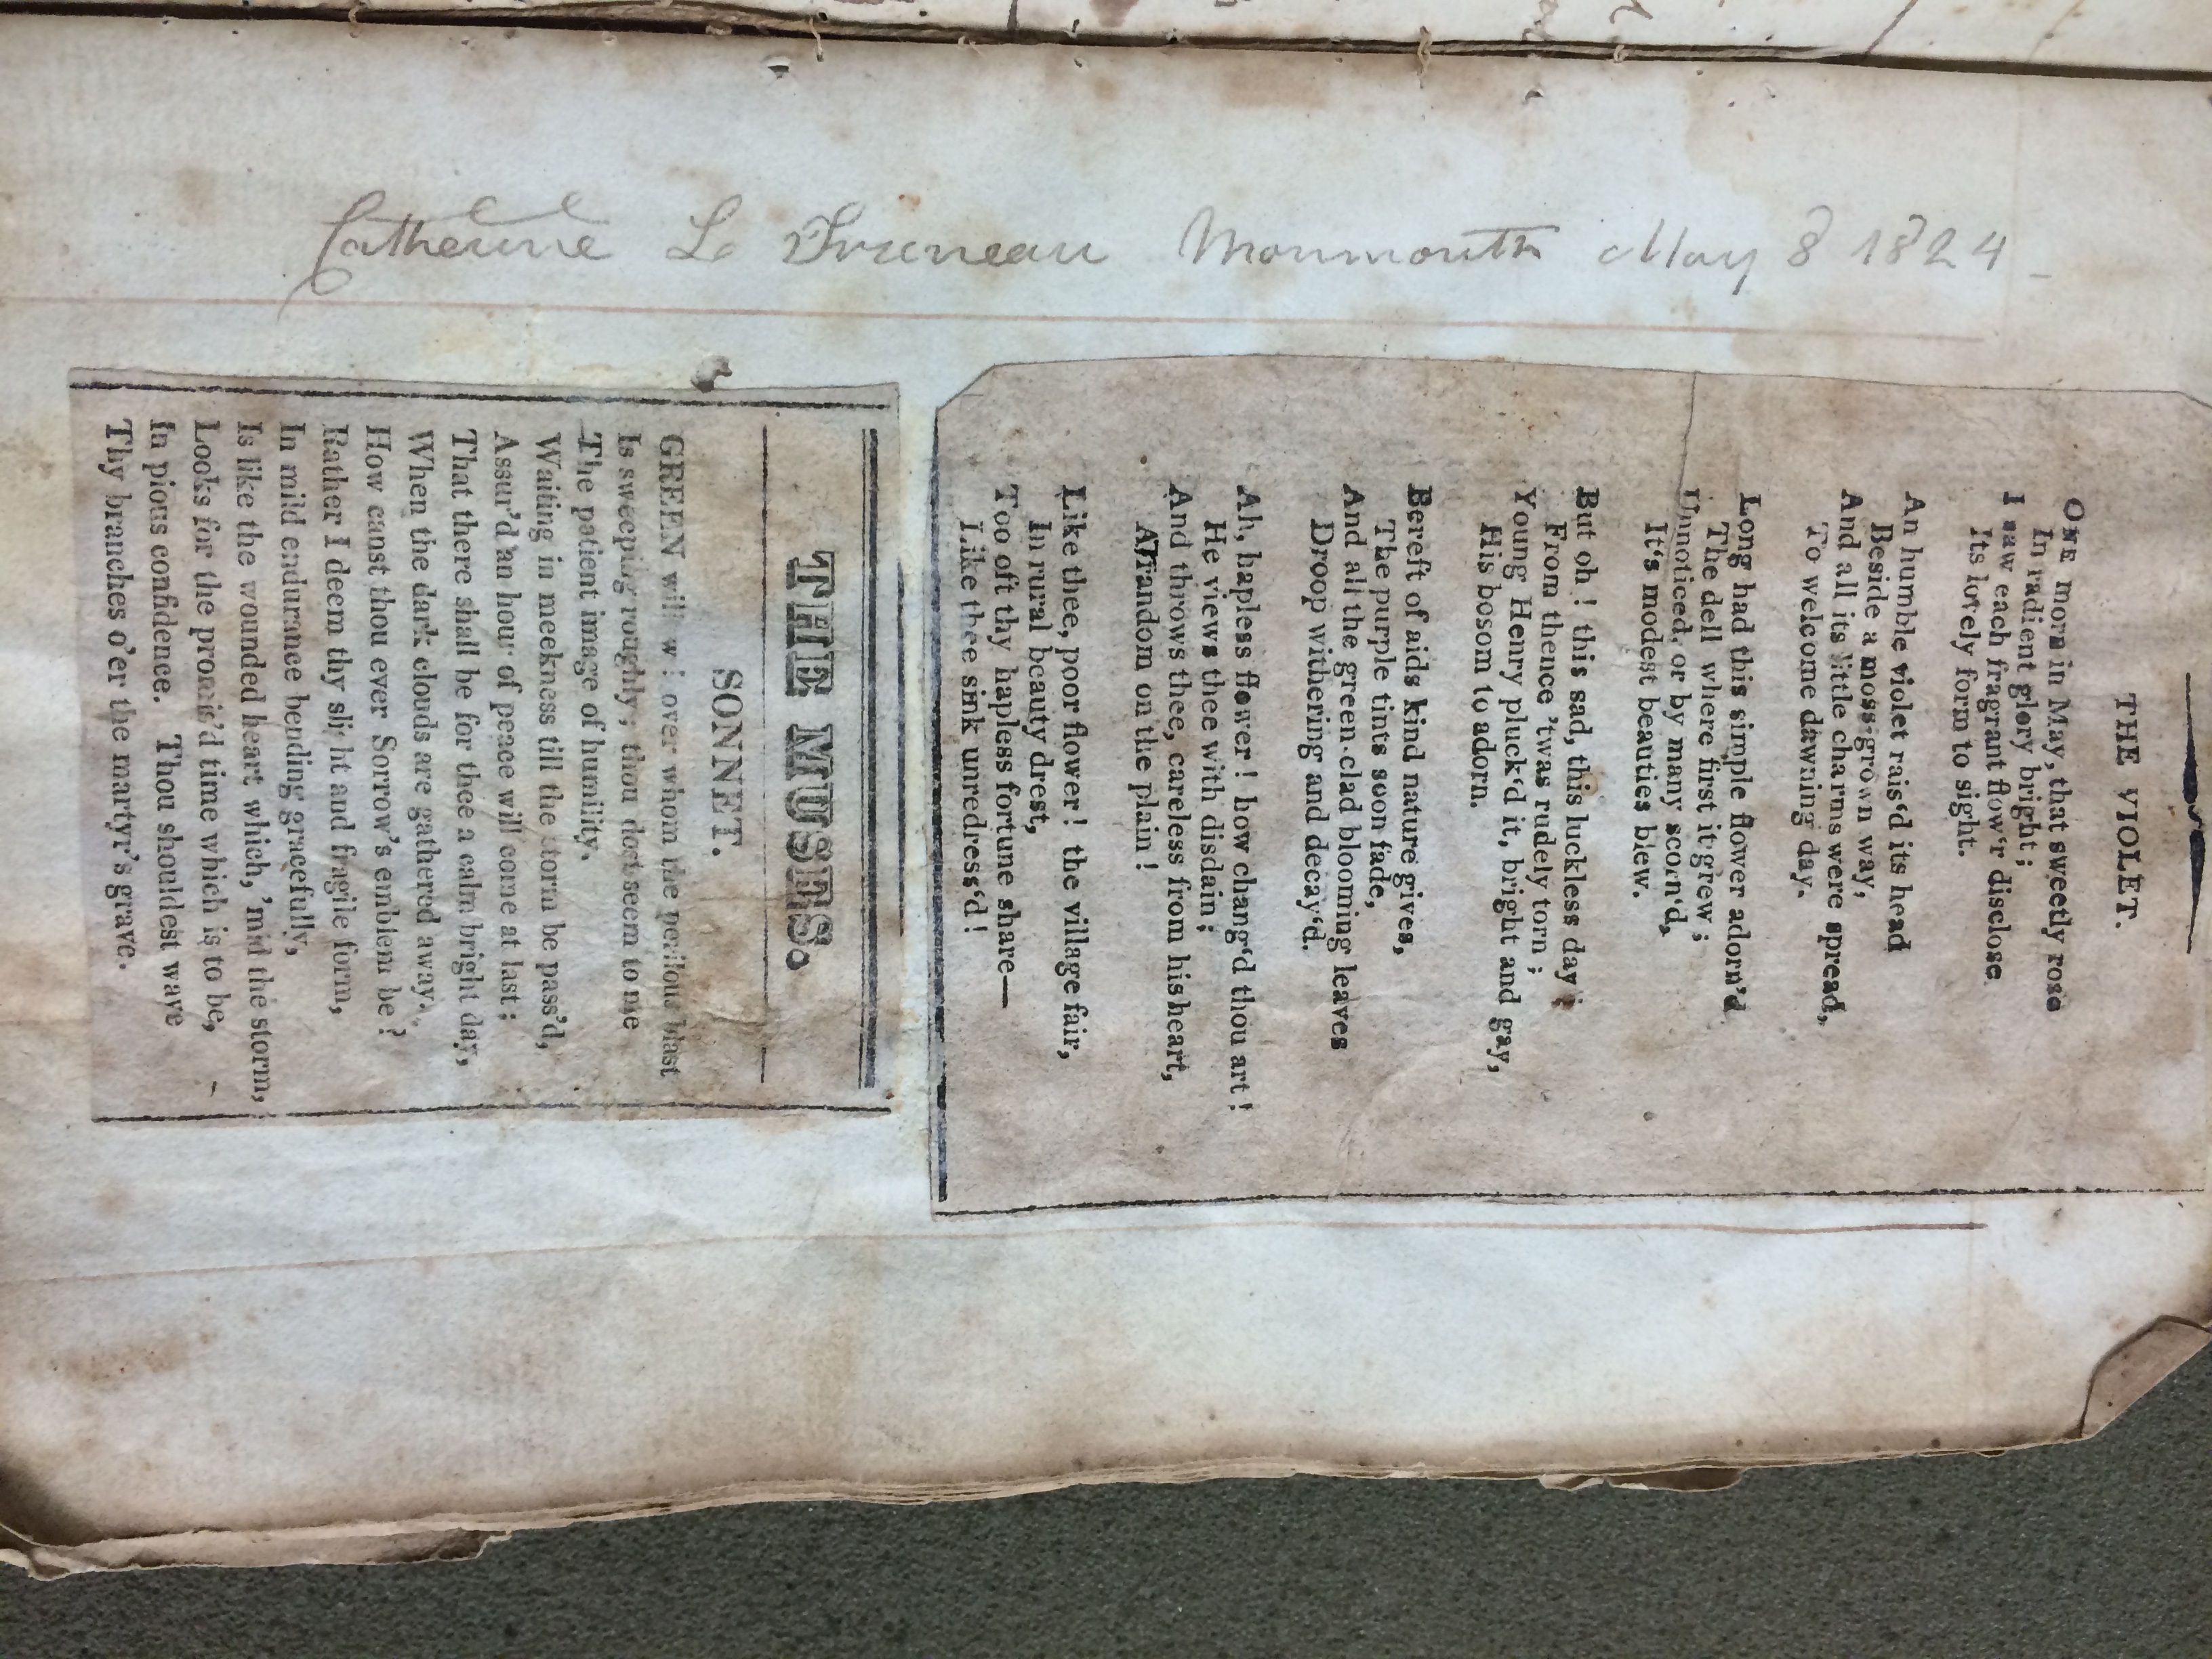 Catherine L Bruneau Monmouth May 8 1824
THE VIOLET.
ONE morn in May, that sweetly rose
In radient glory bright;
I saw each fragrant flow'r disclose
Its lovely form to sight.
An humble violet rais'd its head
Beside a moss-grown way,
And all its little charms were spread,
To welcome dawning day.
Long had this simple flower adorn'd
The dell where first it grew;
Unnoticed, or by many scorn'd,
It's modest beauties blew.
But oh! this sad, this luckless day;
From thence 'twas rudely torn;
Young Henry pluck'd it, bright and gay,
His bosom to adorn.
Bereft of aids kind nature gives,
The purple tints soon fade,
And all the green-clad blooming leaves
Droop withering and decay'd.
Ah, hapless flower! how chang'd thou art!
He views thee with disdain;
And throws thee, careless from his heart,
At random on the plain!
Like thee, poor flower! the village fair,
In rural beauty drest,
Too oft thy hapless fortune share—
Like thee sink unredress'd!
THE MUSES.
SONNET.
GREEN will w over whom the perilous blast
Is sweeping roughly; thou dost seem to me
The patient image of humility.
Waiting in meekness till the storm be pass'd,
Assur'd an hour of peace will come at last;
That there shall be for thee a calm bright day,
When the dark clouds are gathered away.
How canst thou ever Sorrow's emblem be?
Rather I deem thy slight and fragile form,
In mild endurance bending gracefully,
Is like the wounded heart which, 'mid the storm,
Looks for the promis'd time which is to be,
In pious confidence. Thou shouldest wave
Thy branches o'er the martyr's grave.